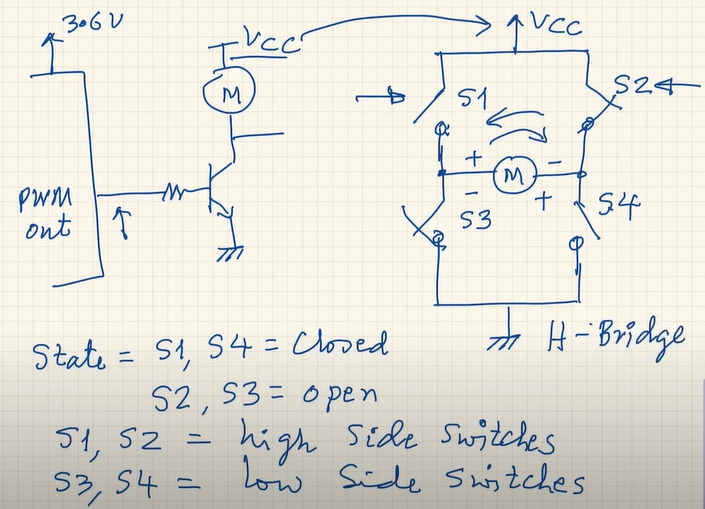 3.6V
VCC
M
PWM
out
VCC
S1
S2
+ M -
- +
S3
S4
H-Bridge
State = S1, S4 = Closed
S2, S3 = open
S1, S2 = high side switches
S3, S4 = Low Side Switches